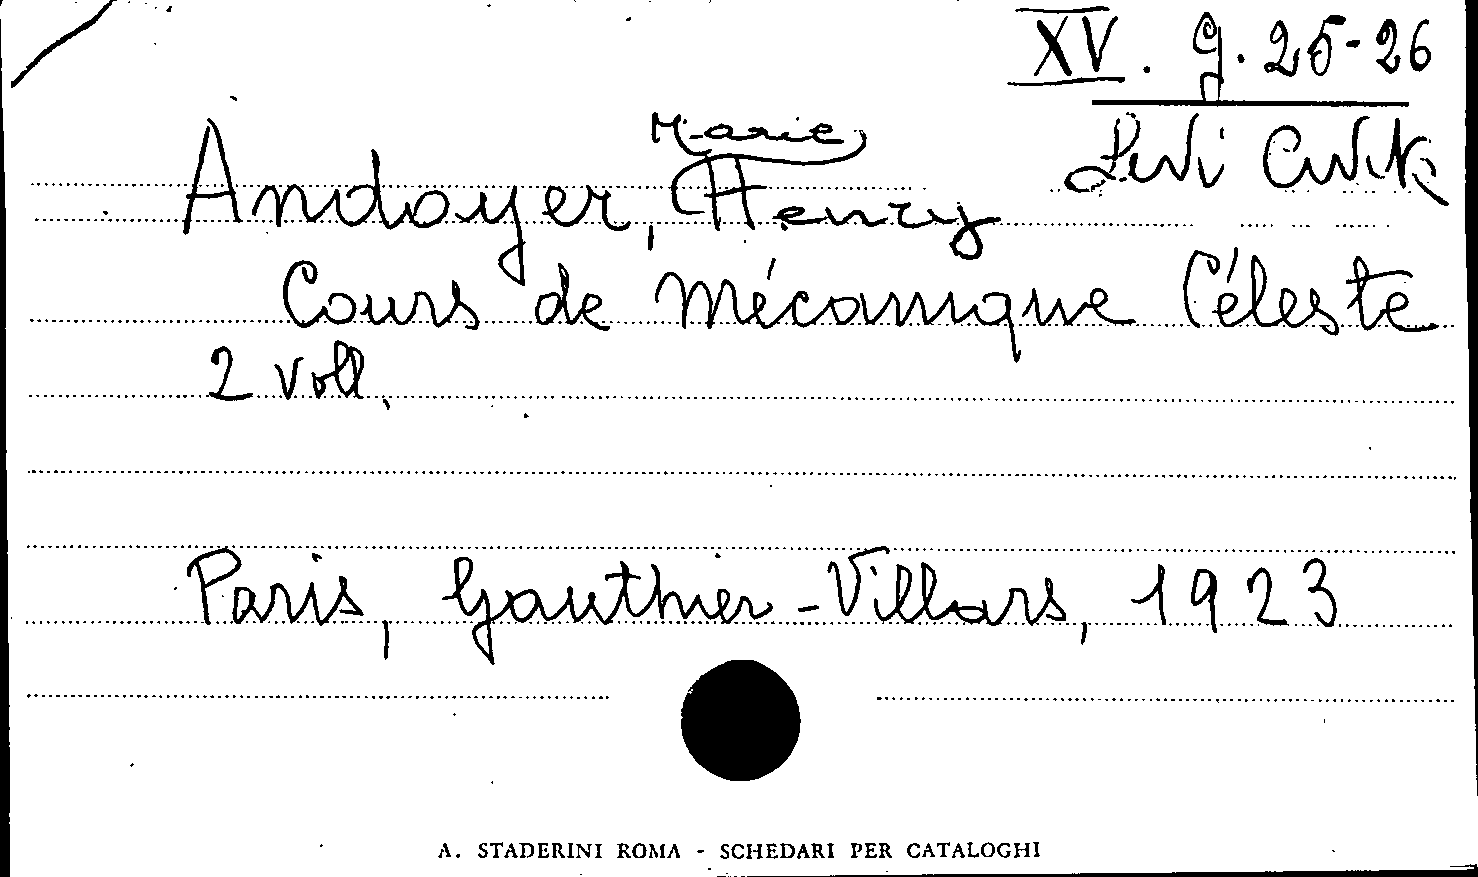 XV. g. 25-26
Levi Civita
Marie
Andoyer, Henry
Cours de Mécanique Céleste
2 voll.
Paris, Gauthier-Villars, 1923
A. STADERINI ROMA - SCHEDARI PER CATALOGHI